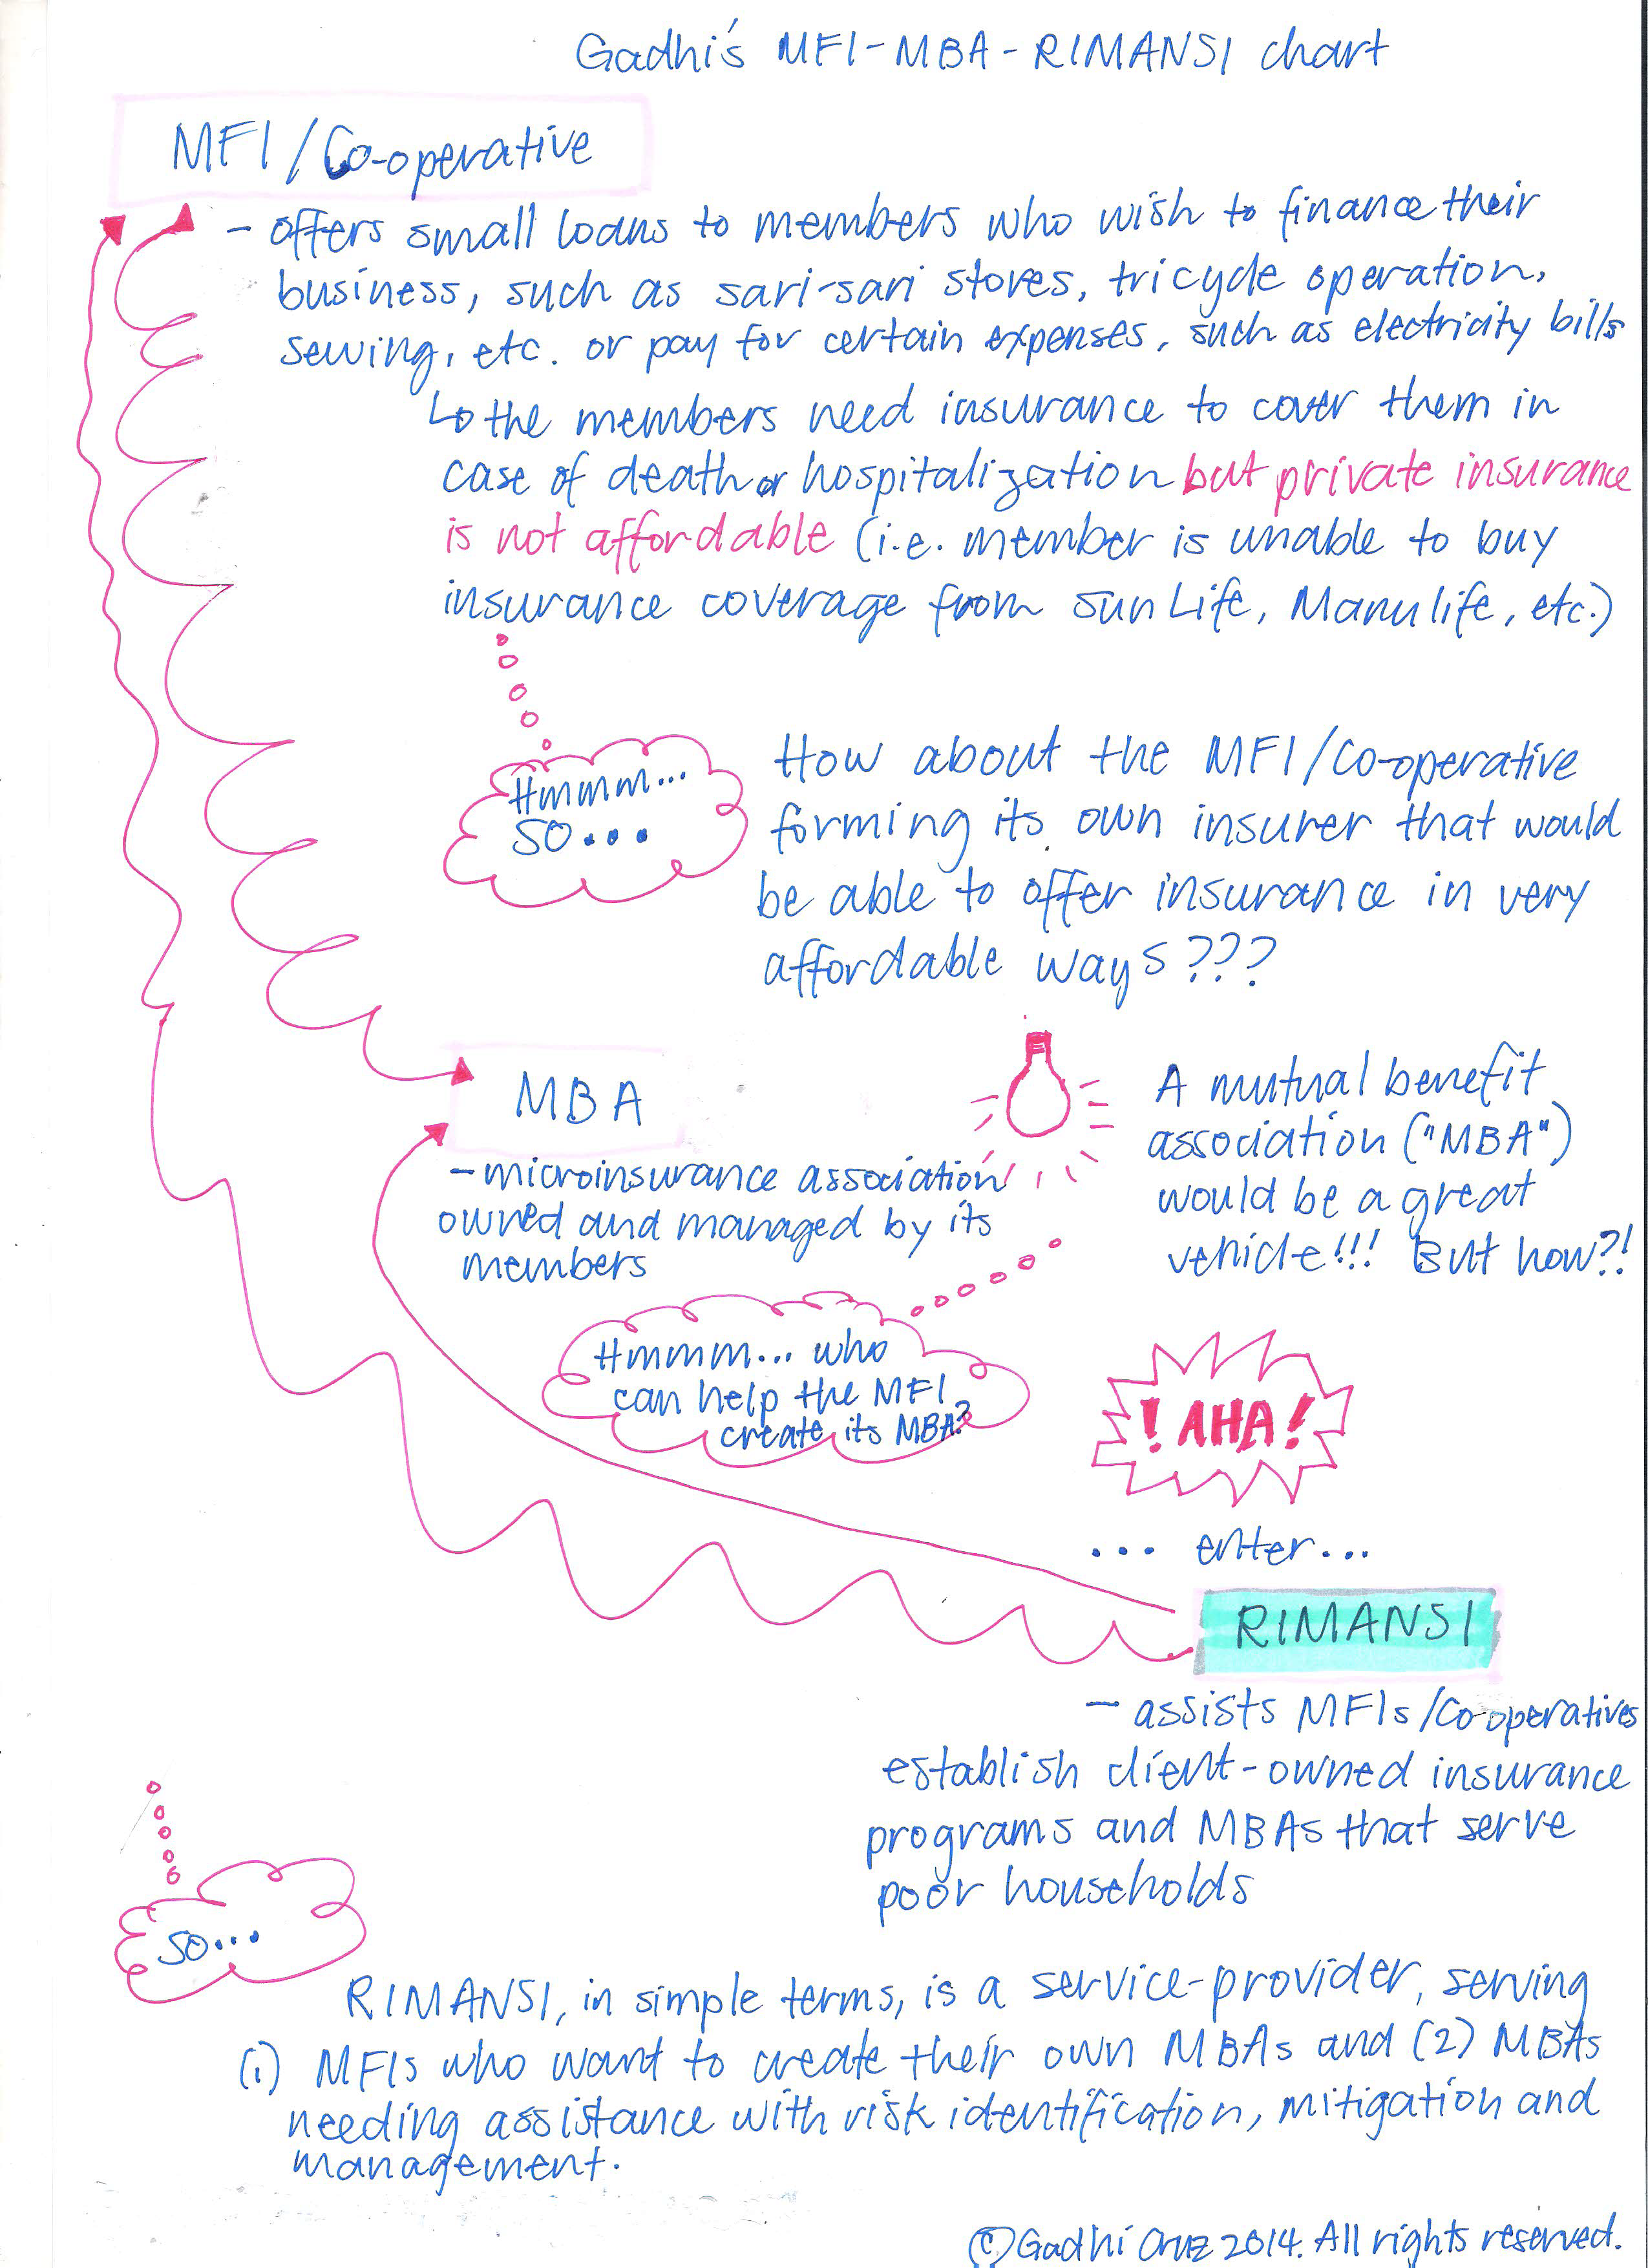 Gadhi's MFI-MBA-RIMANSI chart
MFI/Co-operative
- offers small loans to members who wish to finance their
business, such as sari-sari stores, tricycle operation,
sewing, etc. or pay for certain expenses, such as electricity bills
↳ the members need insurance to cover them in
case of death or hospitalization but private insurance
is not affordable (i.e. member is unable to buy
insurance coverage from Sun Life, Manulife, etc.)
Hmmm...
so...
How about the MFI/Co-operative
forming its own insurer that would
be able to offer insurance in very
affordable ways???
MBA
- microinsurance association
owned and managed by its
members
A mutual benefit
association ("MBA")
would be a great
vehicle!!! But how?!
Hmmm... who
can help the MFI
create its MBA?
! AHA!
... enter...
RIMANSI
- assists MFIs/Co-operatives
establish client-owned insurance
programs and MBAs that serve
poor households
so...
RIMANSI, in simple terms, is a service-provider, serving
(1) MFIs who want to create their own MBAs and (2) MBAs
needing assistance with risk identification, mitigation and
management.
© Gadhi Cruz 2014. All rights reserved.